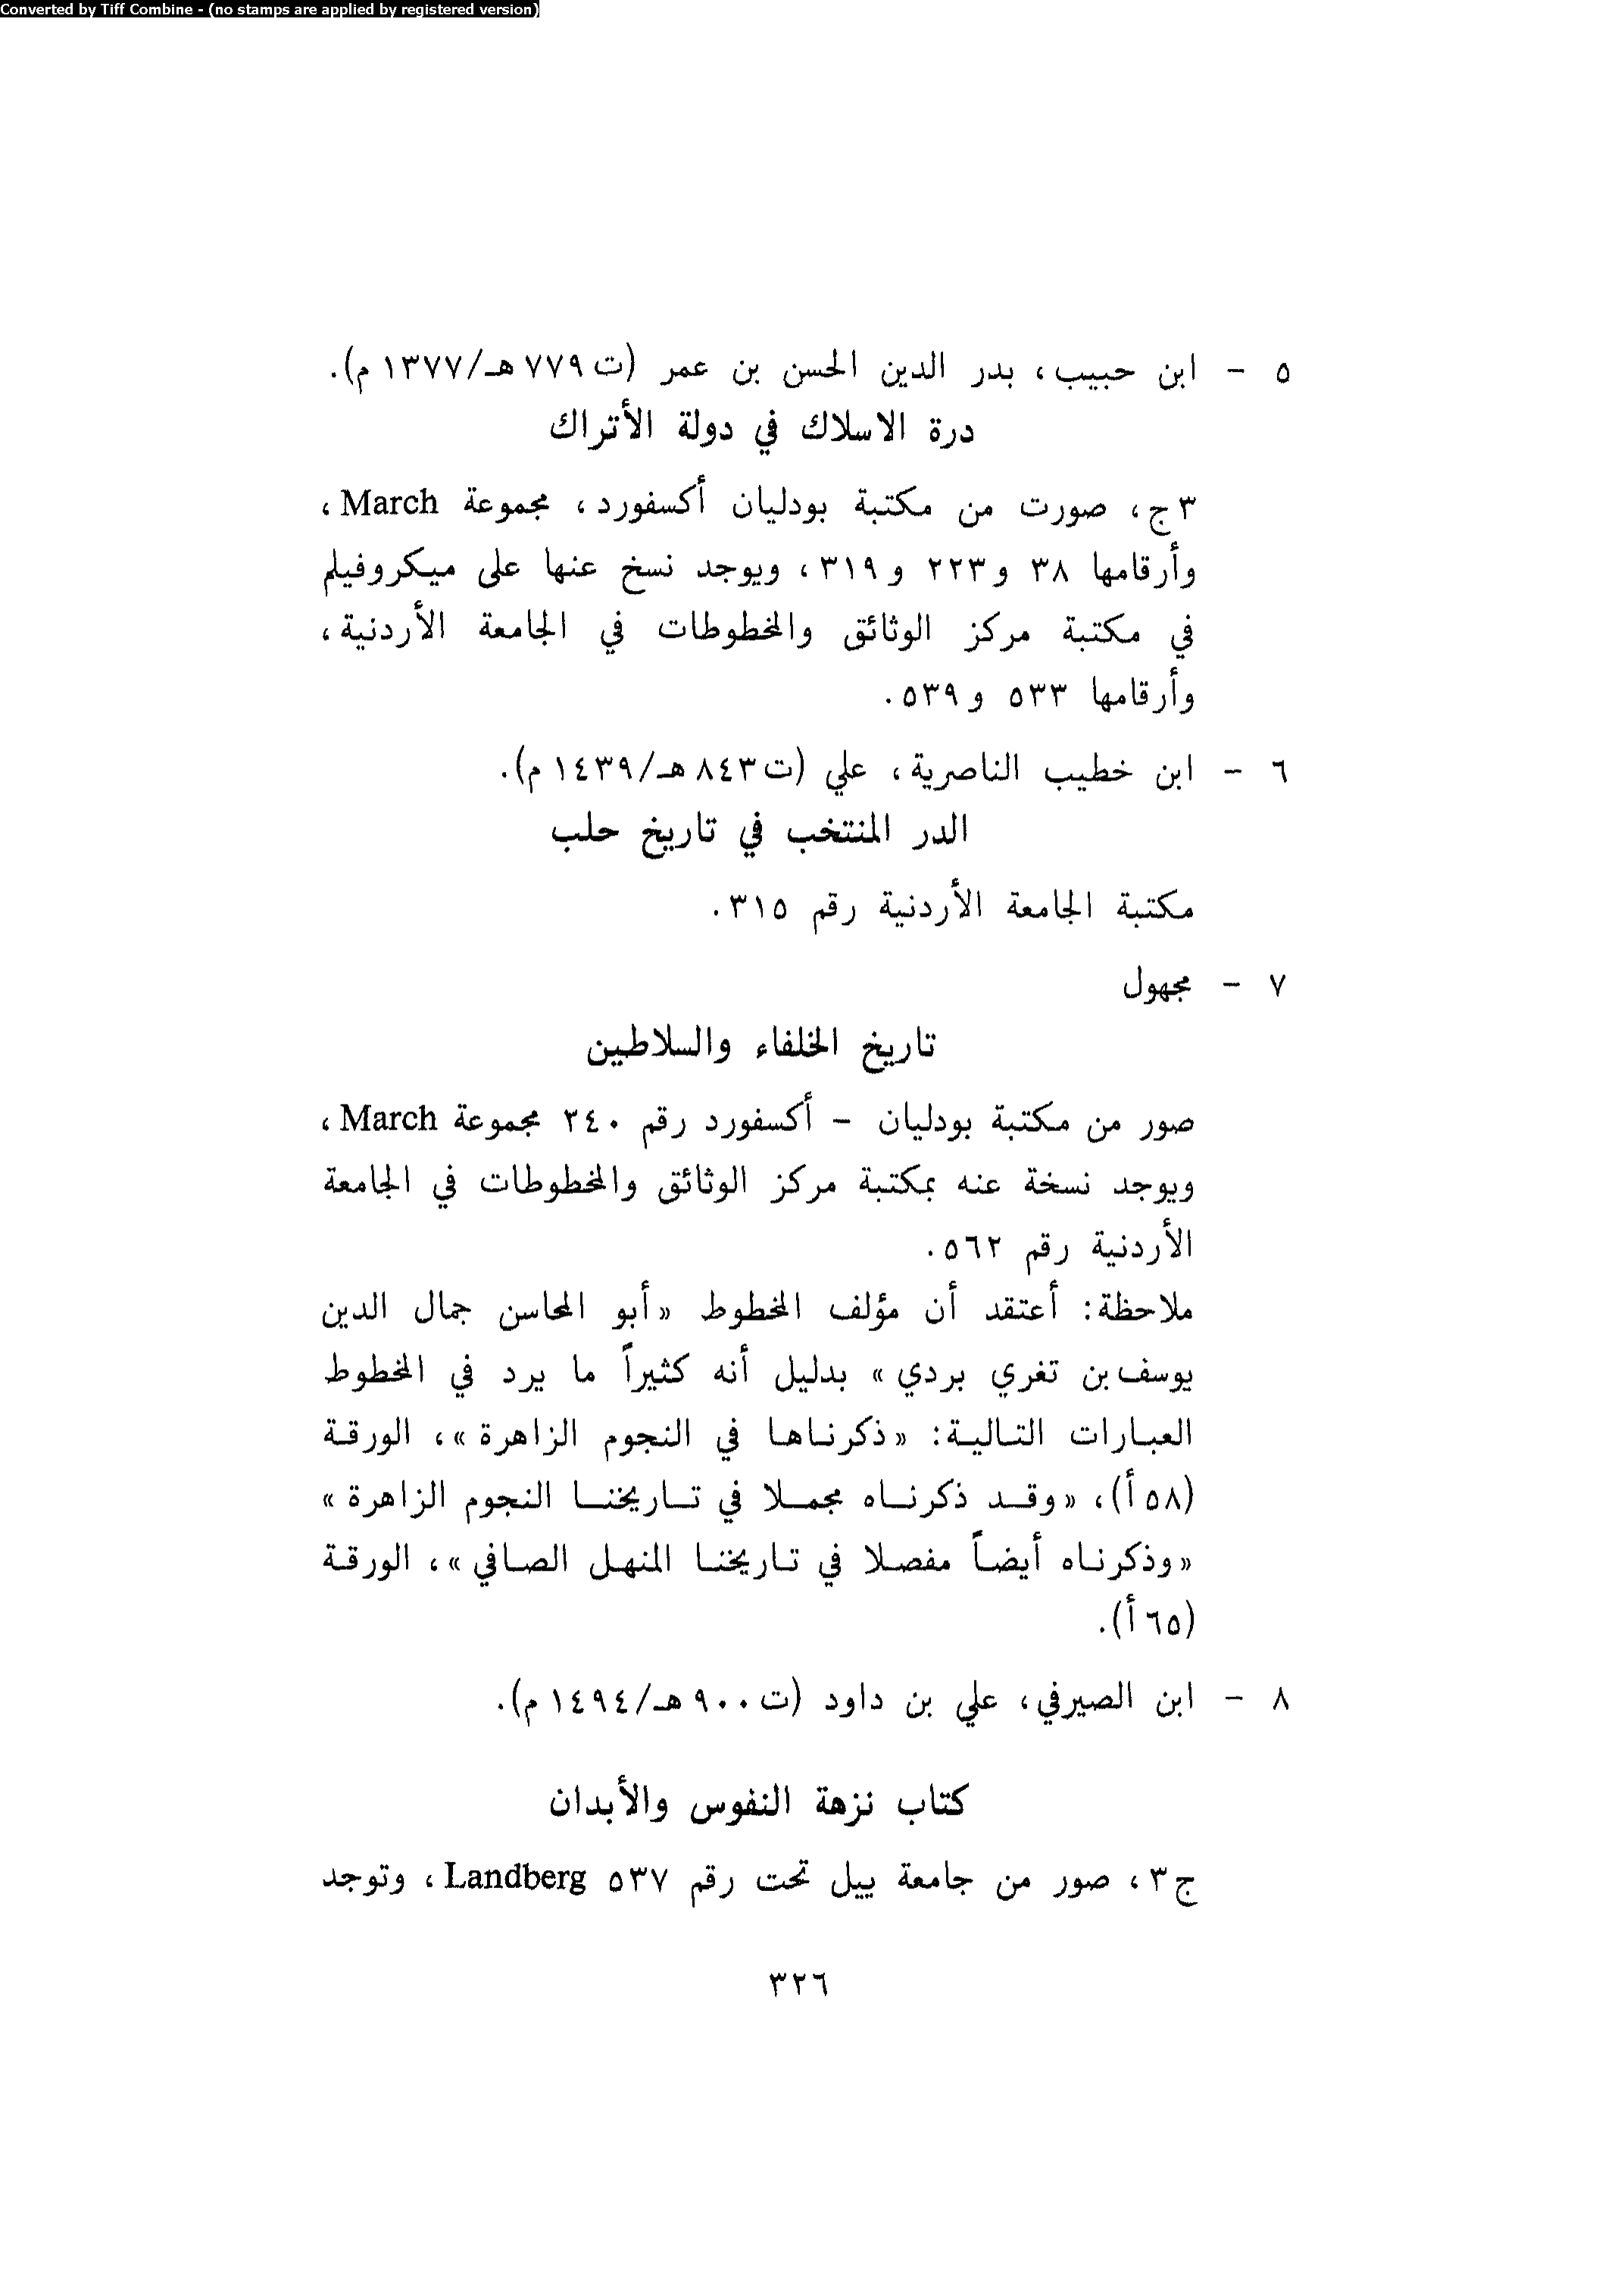 Converted by Tiff Combine - (no stamps are applied by registered version)
٥ - ابن حبيب، بدر الدين الحسن بن عمر (ت ٧٧٩ هـ/١٣٧٧ م).
درة الاسلاك في دولة الأتراك
٣ ج، صورت من مكتبة بودليان أكسفورد، مجموعة March،
وأرقامها ٣٨ و٢٢٣ و٣١٩، ويوجد نسخ عنها على ميكروفيلم
في مكتبة مركز الوثائق والمخطوطات في الجامعة الأردنية،
وأرقامها ٥٣٣ و٥٣٩.
٦ - ابن خطيب الناصرية، علي (ت ٨٤٣ هـ/١٤٣٩ م).
الدر المنتخب في تاريخ حلب
مكتبة الجامعة الأردنية رقم ٣١٥.
٧ - مجهول
تاريخ الخلفاء والسلاطين
صور من مكتبة بودليان - أكسفورد رقم ٣٤٠ مجموعة March،
ويوجد نسخة عنه بمكتبة مركز الوثائق والمخطوطات في الجامعة
الأردنية رقم ٥٦٢.
ملاحظة: أعتقد أن مؤلف المخطوط «أبو المحاسن جمال الدين
يوسف بن تغري بردي» بدليل أنه كثيراً ما يرد في المخطوط
العبارات التالية: «ذكرناها في النجوم الزاهرة»، الورقة
(٥٨ أ)، «وقد ذكرناه مجملا في تاريخنا النجوم الزاهرة»
«وذكرناه أيضاً مفصلا في تاريخنا المنهل الصافي»، الورقة
(٦٥ أ).
٨ - ابن الصيرفي، علي بن داود (ت ٩٠٠ هـ/١٤٩٤ م).
كتاب نزهة النفوس والأبدان
ج ٣، صور من جامعة ييل تحت رقم ٥٣٧ Landberg، وتوجد
٣٢٦